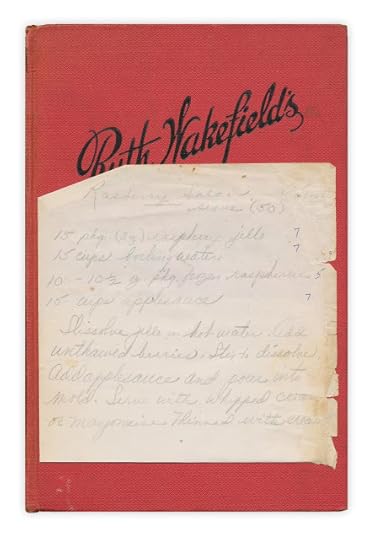 Ruth Wakefield's
Raspberry Salad
serve (50)
15 pkg. (3g) raspberry jello 7
15 cups boiling water 7
10 - 10½ g pkg. frozen raspberries 5
15 cups applesauce 7
Dissolve jello in hot water. Add
unthawed berries. Stir to dissolve.
Add applesauce and pour into
mold. Serve with whipped cream
or mayonaise thinned with cream